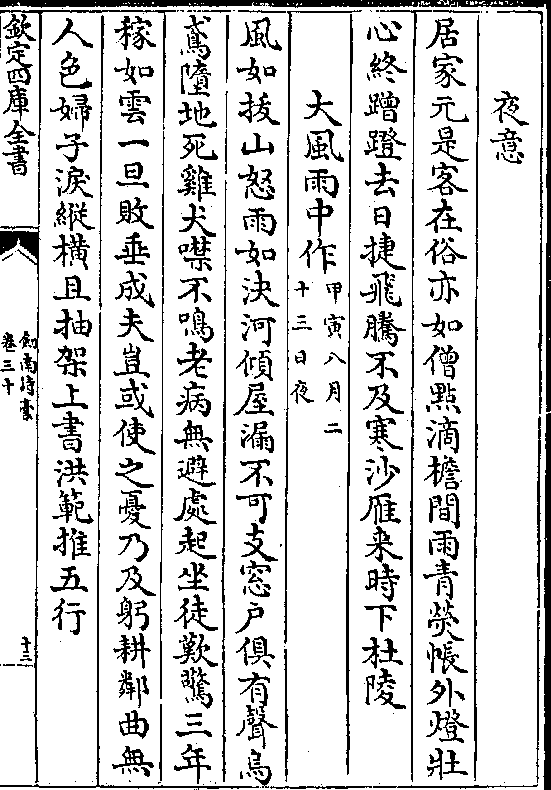 夜意
居家元是客在俗亦如僧點滴檐間雨青熒帳外燈壯
心終蹭蹬去日捷飛騰不及寒沙雁来時下杜陵
大風雨中作甲寅八月二十三日夜
風如拔山怒雨如決河傾屋漏不可支窓戶俱有聲烏
鳶墮地死雞犬噤不鳴老病無避處起坐徒歎驚三年
稼如雲一旦敗垂成夫豈或使之憂乃及躬耕鄰曲無
人色婦子淚縱橫且抽架上書洪範推五行
欽定四庫全書
劍南詩稾
卷三十
十二